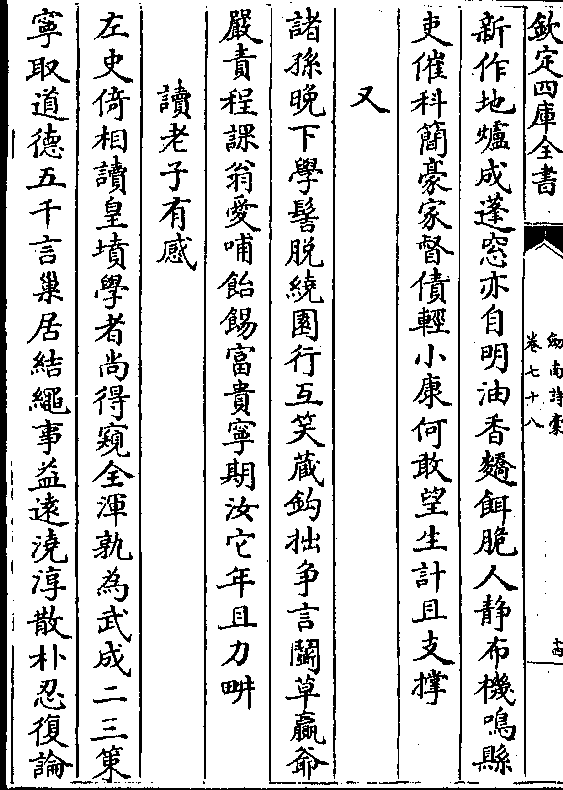 欽定四庫全書
劍南詩稾
卷七十八
十四
新作地爐成蓬窓亦自明油香麷餌脆人静布機鳴縣
吏催科簡豪家督債輕小康何敢望生計且支撑
又
諸孫晚下學髻脫繞園行互笑藏鈎拙争言鬭草贏爺
嚴責程課翁愛哺飴餳富貴寧期汝它年且力畊
讀老子有感
左史倚相讀皇墳學者尚得窺全渾孰為武成二三策
寧取道德五千言巢居結繩事益遠澆淳散朴忍復論